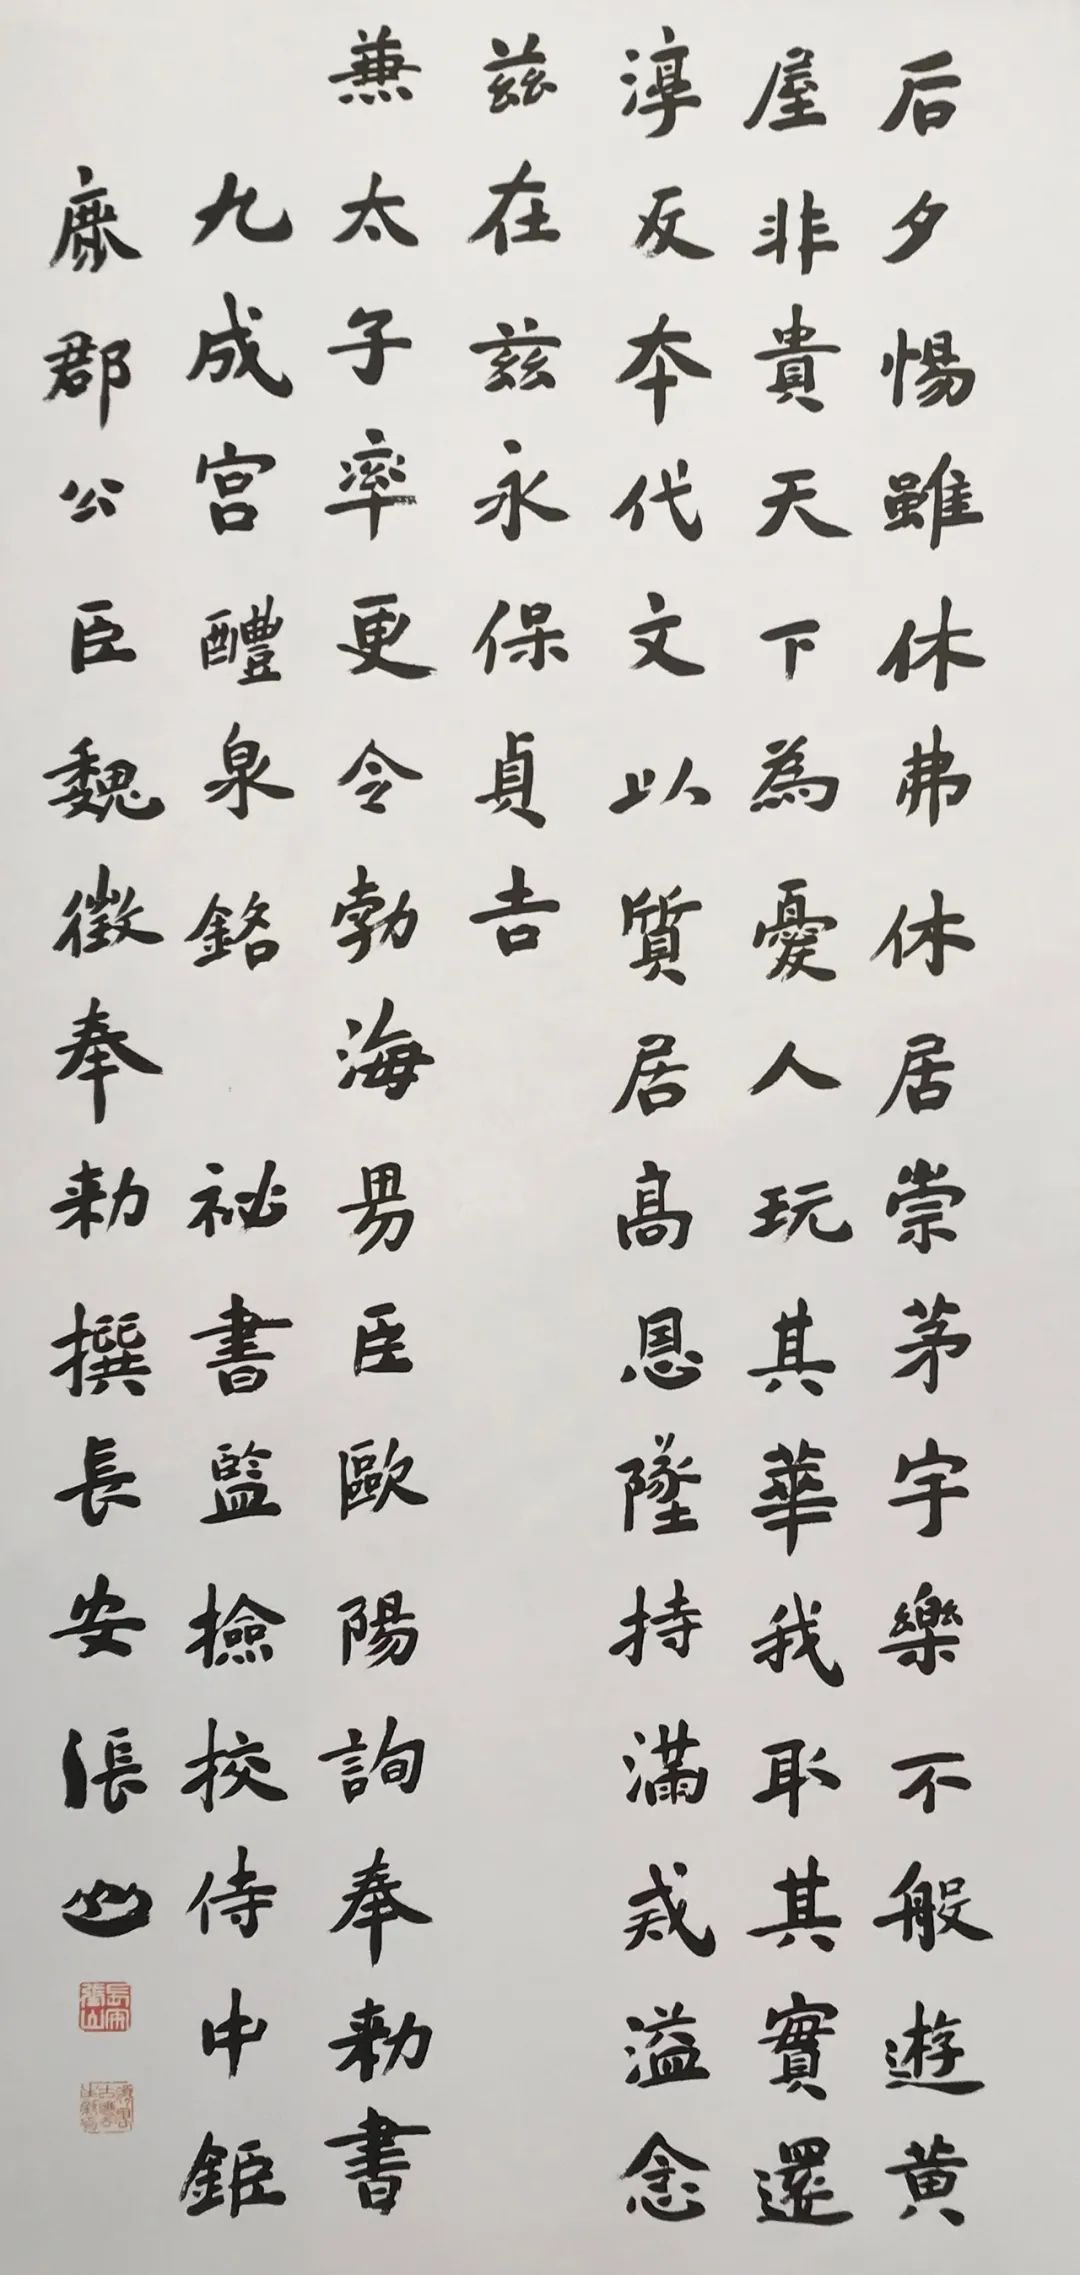 后夕惕雖休弗休居崇茅宇樂不般遊黄
屋非貴天下為憂人玩其華我取其實還
淳反本代文以質居高思墜持滿戒溢念
兹在兹永保貞吉
兼太子率更令勃海男臣歐陽詢奉勅書
九成宮醴泉銘 祕書監撿挍侍中鉅
鹿郡公臣魏徵奉勅撰長安張山